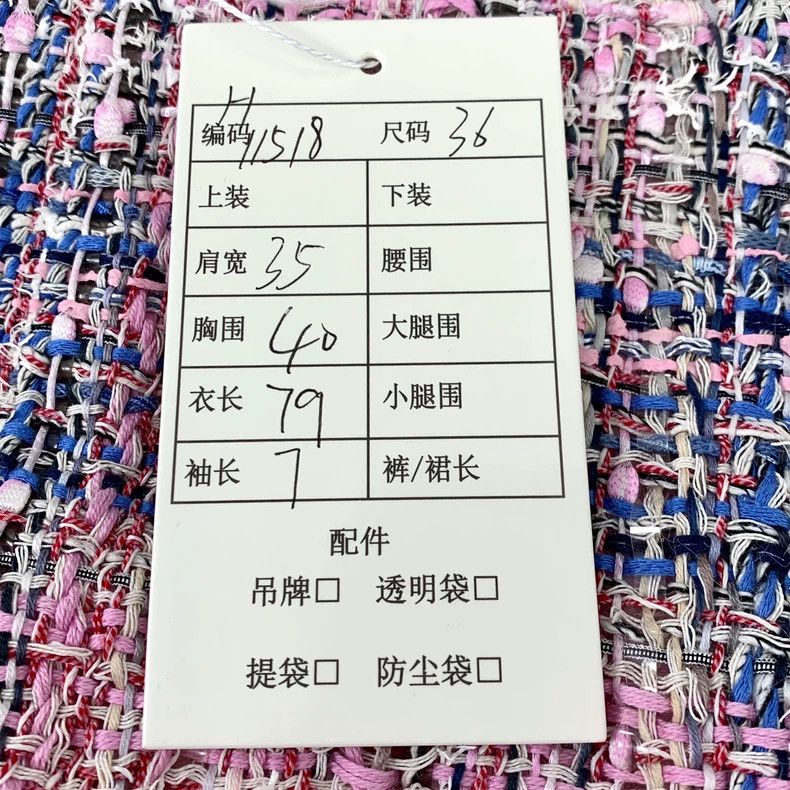 编码 H11518 尺码 36
上装 下装
肩宽 35 腰围
胸围 40 大腿围
衣长 79 小腿围
袖长 7 裤/裙长
配件
吊牌□ 透明袋□
提袋□ 防尘袋□